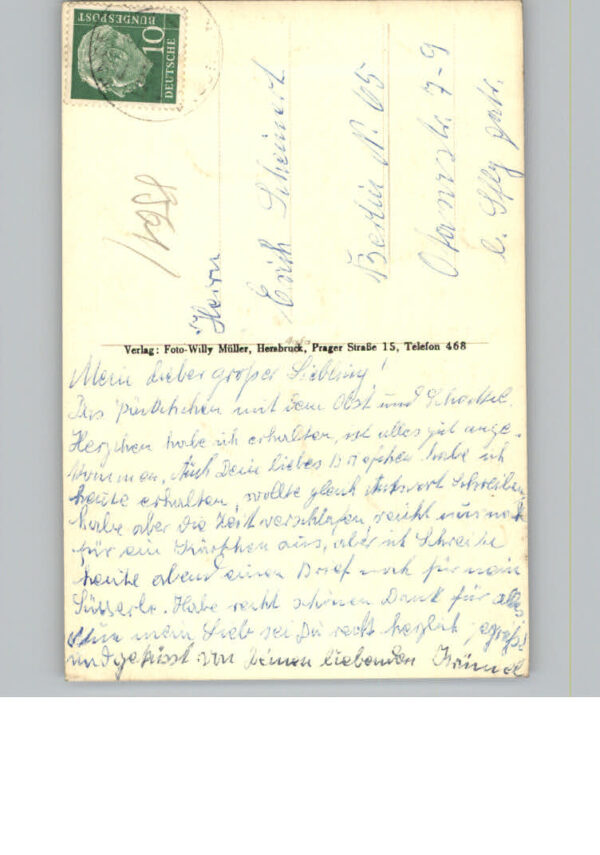 DEUTSCHE
BUNDESPOST
10
Herrn
Erich
Berlin N. 65
7-9
Verlag: Foto-Willy Müller, Hersbruck, Prager Straße 15, Telefon 468
Mein lieber großer Liebling!
Das Päckchen mit dem Obst und
Herzchen habe ich erhalten, ist alles gut ange-
kommen. Auch Dein liebes Briefchen habe ich
heute erhalten, wollte gleich Antwort schreiben
habe aber die Zeit verschlafen, reicht nur noch
für ein Kärtchen aus, aber ich schreibe
heute abend einen Brief noch für mein
Süsserle. Habe recht schönen Dank für alles
mein Lieb sei Du recht herzlich gegrüßt
und geküsst von Deinen liebenden